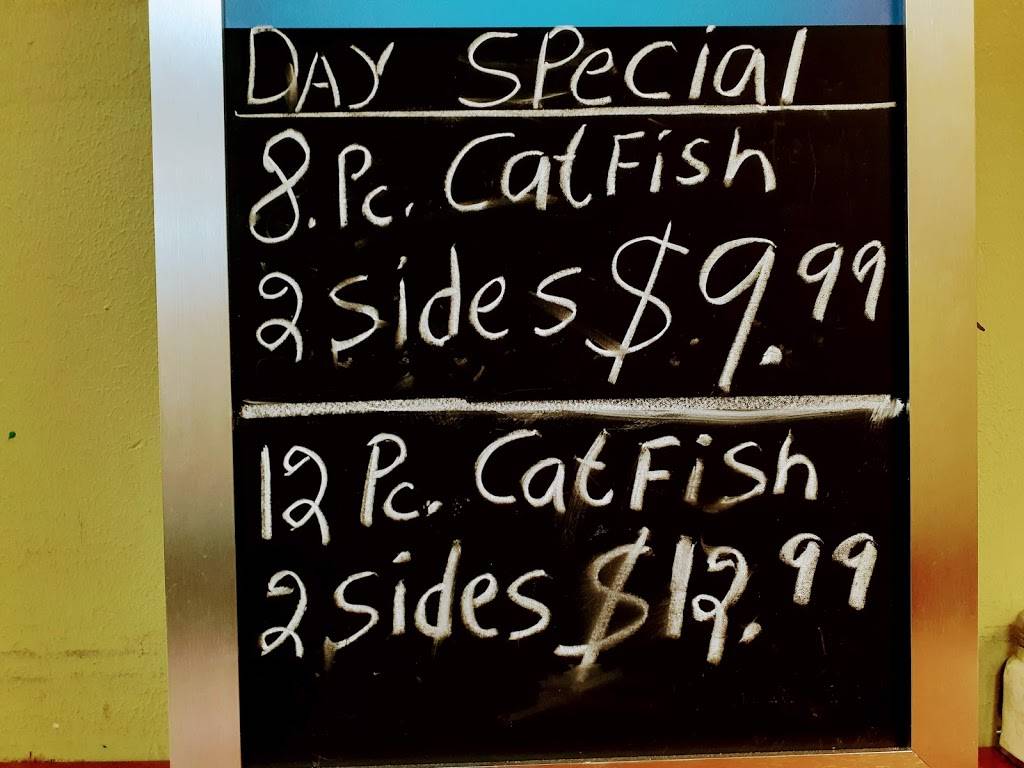 DAY Special
8. Pc. CatFish
2 sides $9.99
12 Pc. CatFish
2 sides $12.99